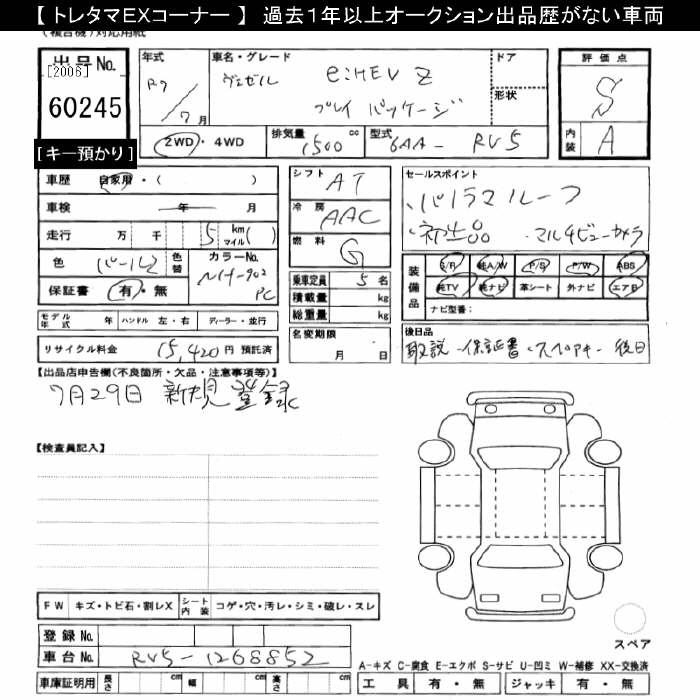 【 トレタマEXコーナー 】 過去１年以上オークション出品歴がない車両
（複合機）対応用紙
出品No.
[2006]
60245
[キー預かり]
年式 R7 / 7月
車名・グレード ヴェゼル e:HEV Z
プレイ パッケージ
ドア
形状
2WD・4WD
排気量 1500 cc
型式 6AA - RV5
評価点 S
内装 A
車歴 自家用・( )
車検 年 月
走行 万 千 5 km マイル( )
色 パールⅡ 色替
カラーNo. NH-902 PC
保証書 有・無
シフト AT
冷房 AAC
燃料 G
乗車定員 5 名
積載量 kg
総重量 kg
名変期限 月 日
セールスポイント
・パノラマルーフ
・初出品 ・マルチビューカメラ
装備品 S/R 純A/W P/S P/W ABS
純TV 純ナビ 革シート 外ナビ エアB
ナビ型番：
モデル年式 年 ハンドル 左・右 ディーラー・並行
リサイクル料金 15,420 円 預託済
後日品
取説・保証書・スペアキー 後日
【出品店申告欄(不良箇所・欠品・注意事項等)】
7月29日 新規登録
【検査員記入】
FW キズ・トビ石・割レX シート内装 コゲ・穴・汚レ・シミ・破レ・スレ
登録 No.
車台 No. RV5-1268852
スペア
A-キズ C-腐食 E-エクボ S-サビ U-凹ミ W-補修 XX-交換済
車庫証明用 長さ cm 幅 cm 高さ cm
工具 有・無 ジャッキ 有・無